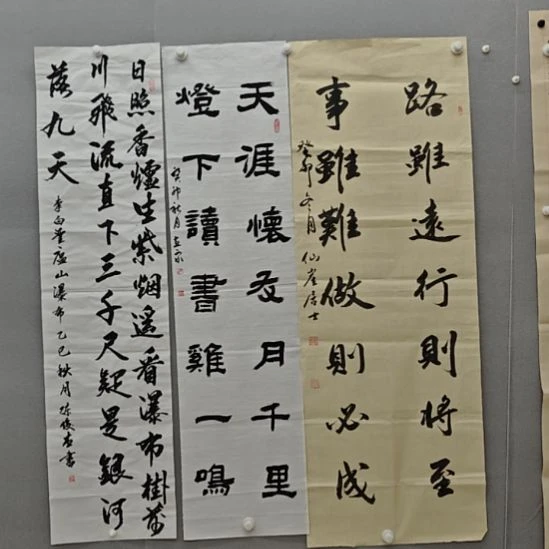 路雖遠行則將至
事雖難做則必成
癸卯冬月 仙崖居士
天涯懷友月千里
燈下讀書雞一鳴
癸卯秋月
日照香爐生紫烟遥看瀑布掛前
川飛流直下三千尺疑是銀河
落九天
李白望廬山瀑布乙巳秋月陈俊杰書